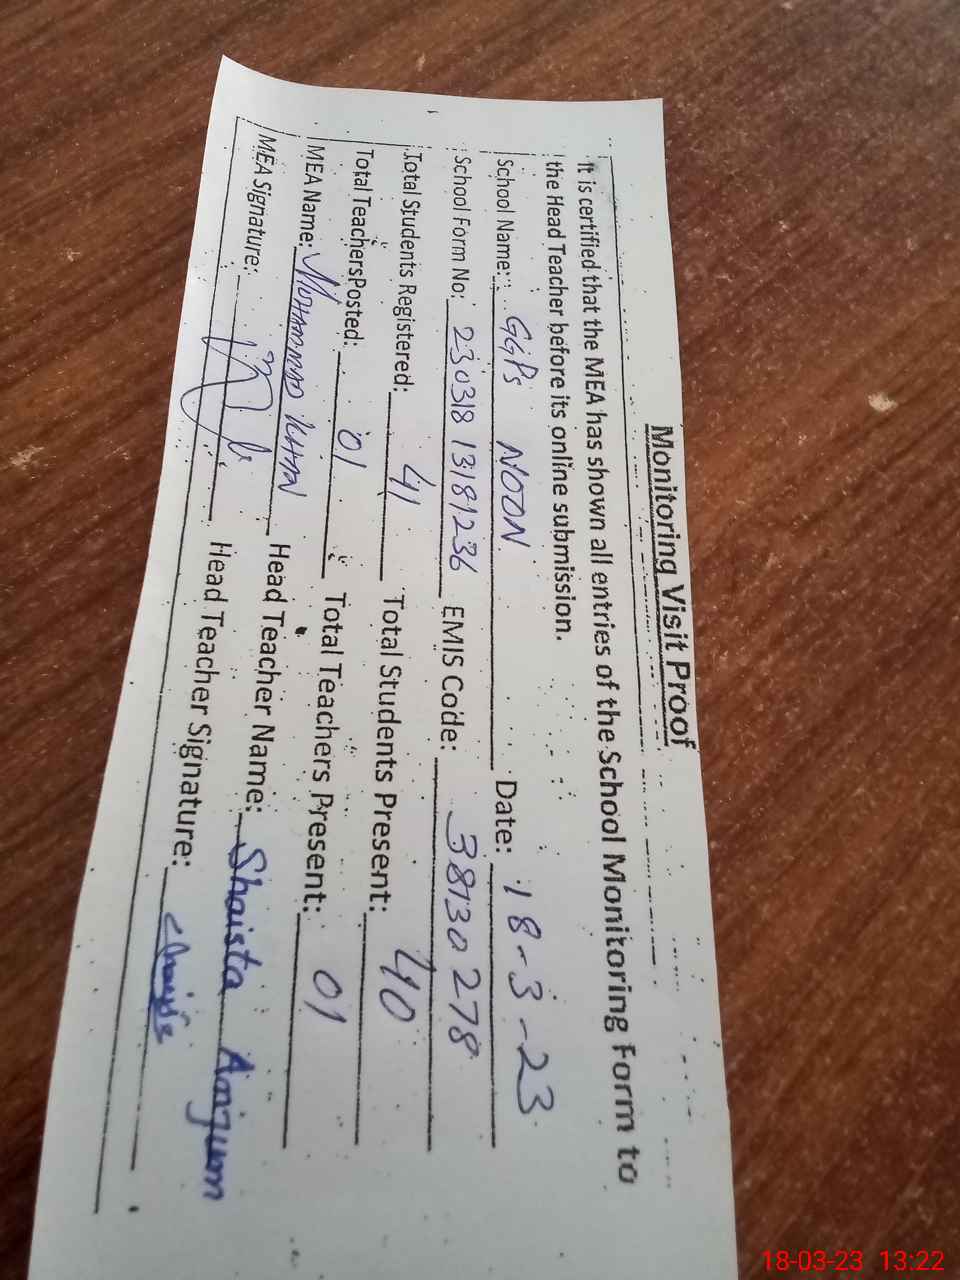 Monitoring Visit Proof
It is certified that the MEA has shown all entries of the School Monitoring Form to
the Head Teacher before its online submission.
School Name: GGPS NOON Date: 18-3-23
School Form No: 230318 13181236 EMIS Code: 38130278
Total Students Registered: 41 Total Students Present: 40
Total Teachers Posted: 01 Total Teachers Present: 01
MEA Name: MOHAMMAD KHAN Head Teacher Name: Shaista Anjum
MEA Signature: Head Teacher Signature:
18-03-23 13:22